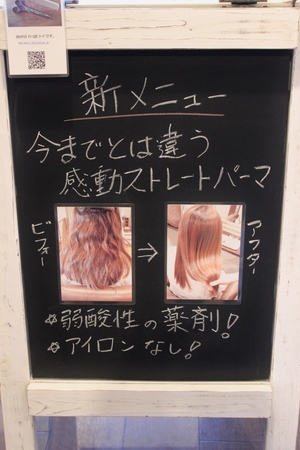 新メニュー
今までとは違う
感動ストレートパーマ
ビフォー
⇒
アフター
☆弱酸性の薬剤!
☆アイロンなし!